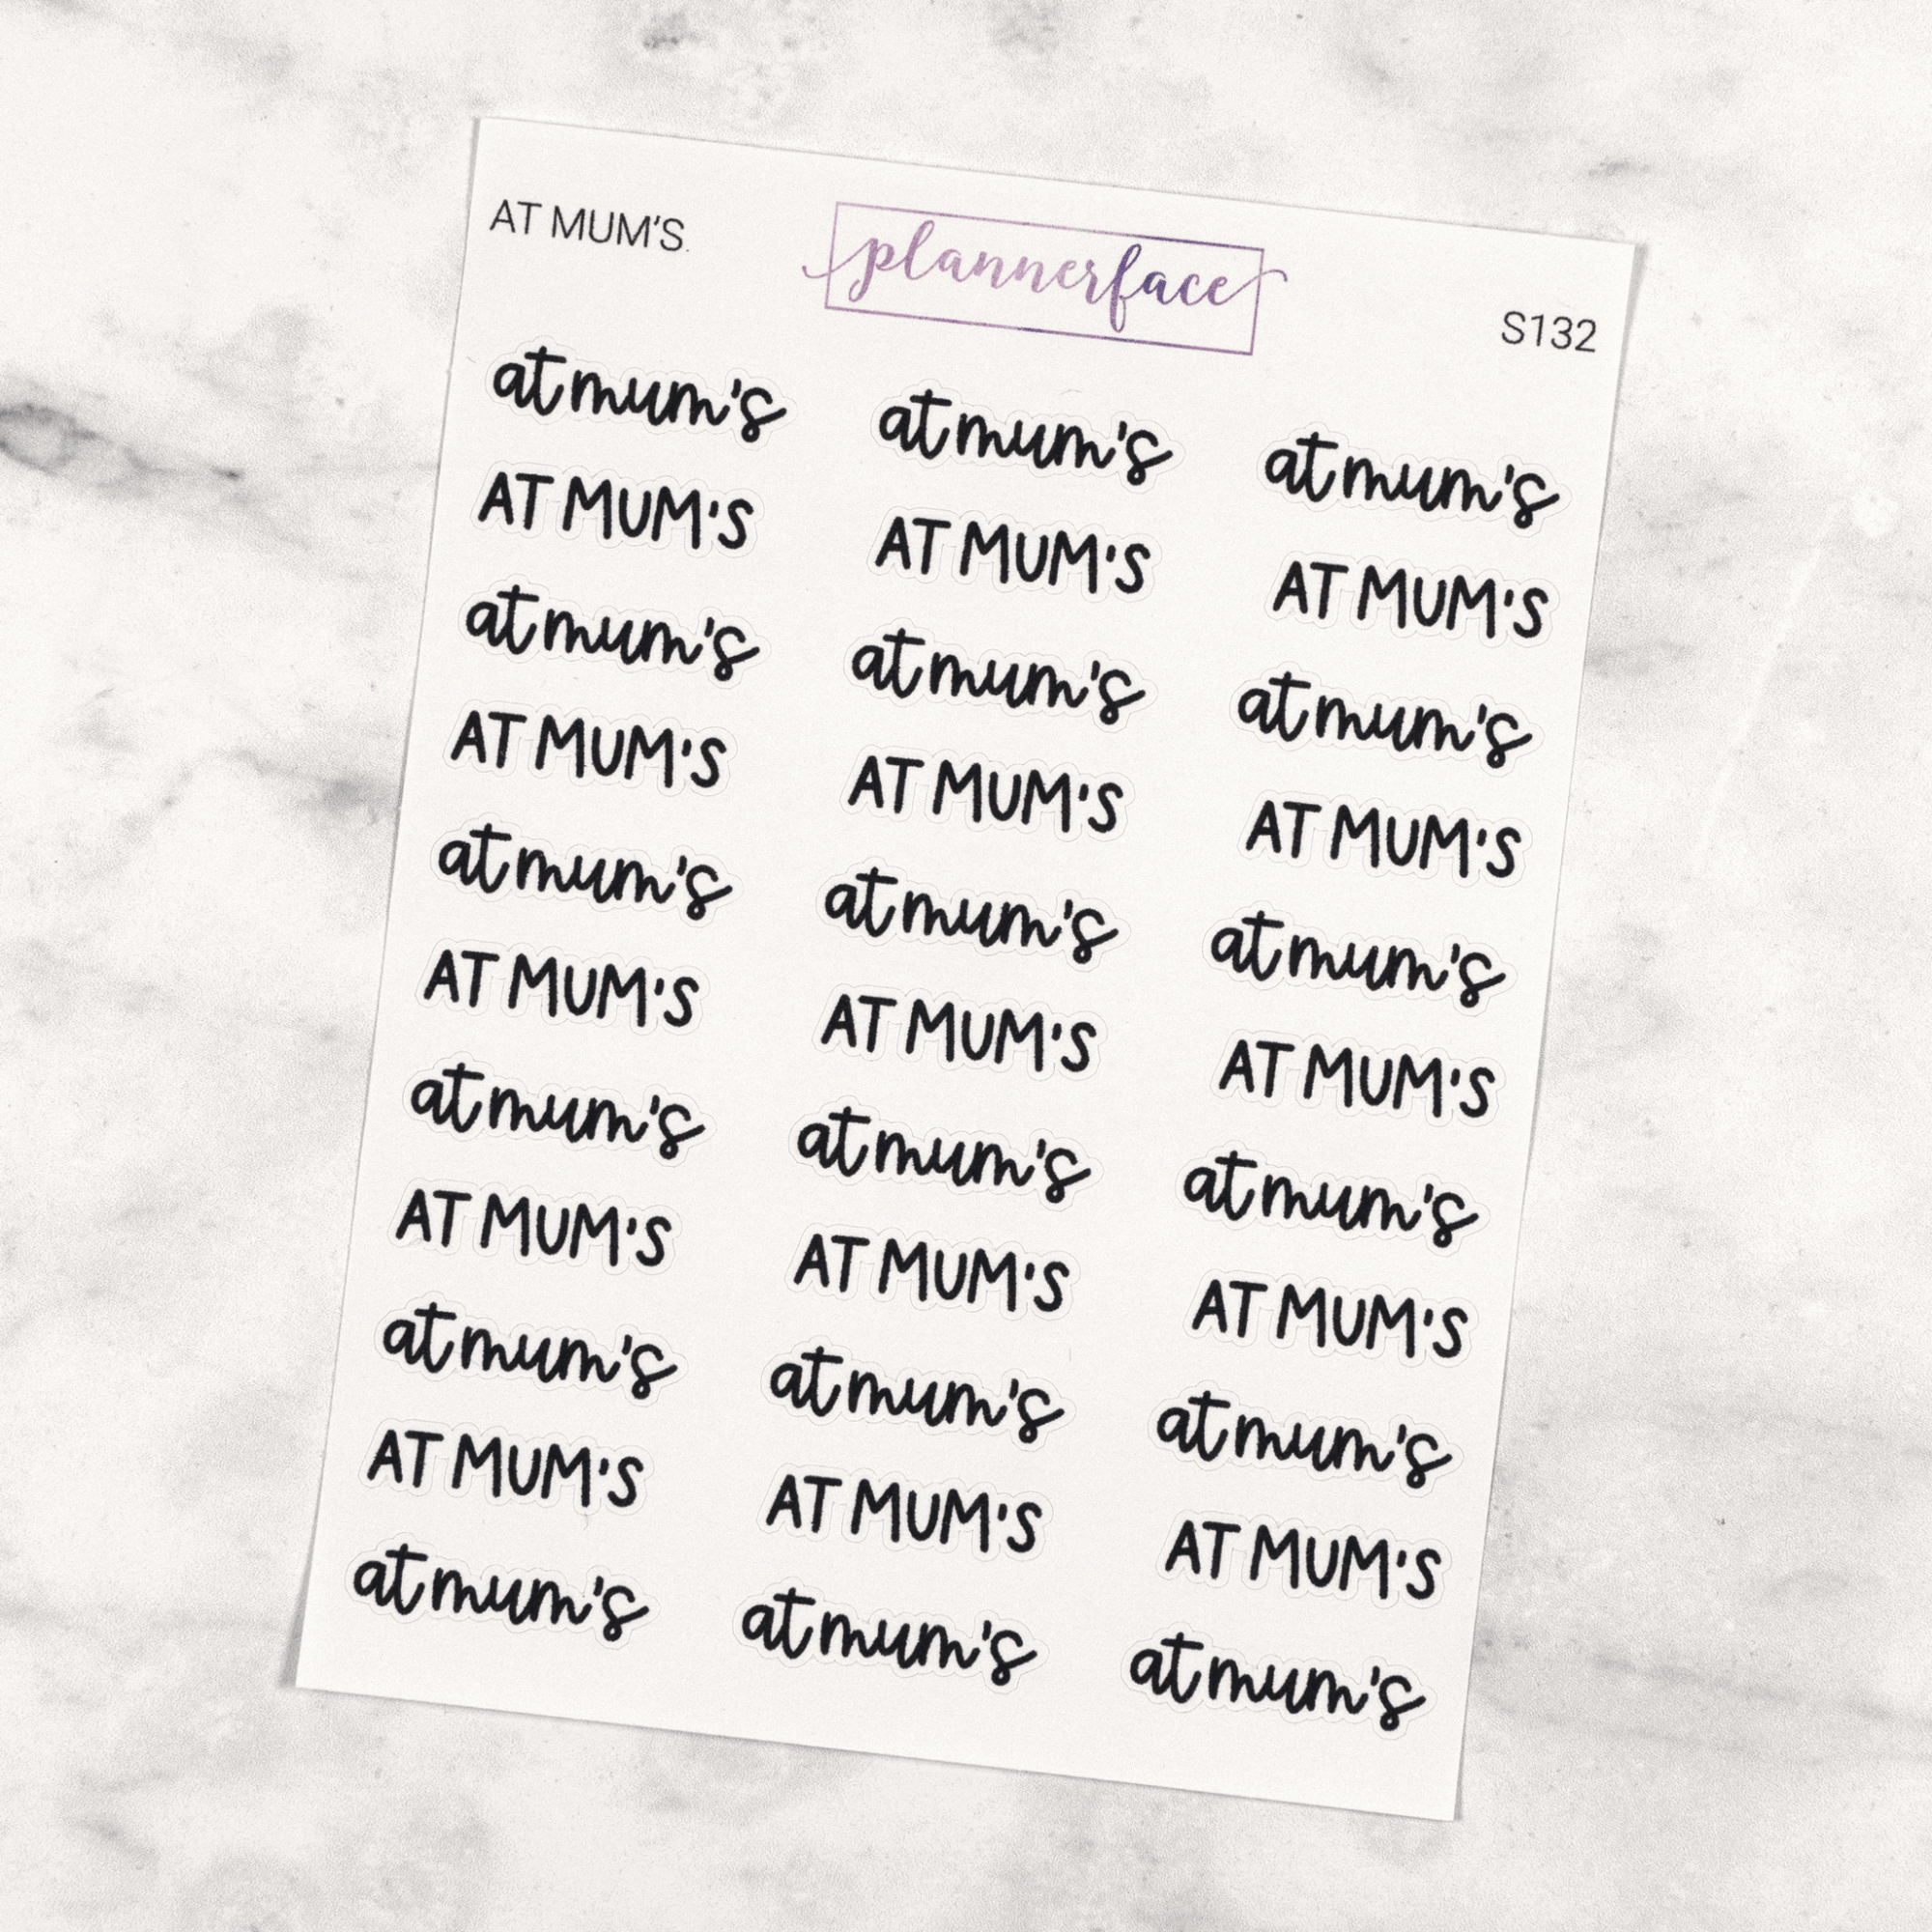 AT MUM'S
plannerface
S132
at mum's at mum's at mum's
AT MUM'S AT MUM'S AT MUM'S
at mum's at mum's at mum's
AT MUM'S AT MUM'S AT MUM'S
at mum's at mum's at mum's
AT MUM'S AT MUM'S AT MUM'S
at mum's at mum's at mum's
AT MUM'S AT MUM'S AT MUM'S
at mum's at mum's at mum's
AT MUM'S AT MUM'S AT MUM'S
at mum's at mum's at mum's